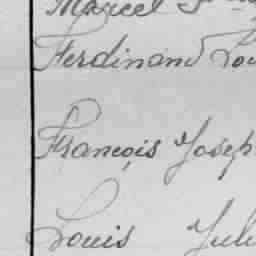 Marcel
Ferdinand Lou
François Josep
Louis Jule